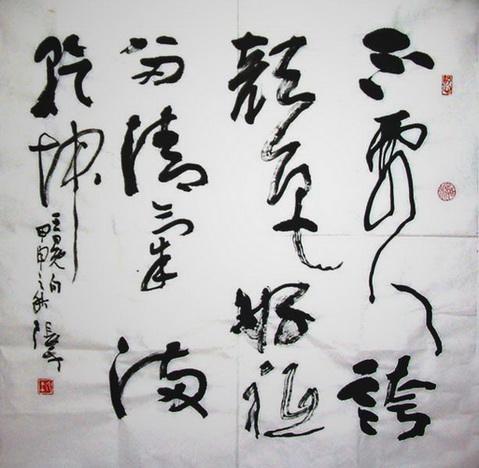 不要人誇
顔色好祗
留清氣滿
乾坤
王冕句
甲申之秋 張